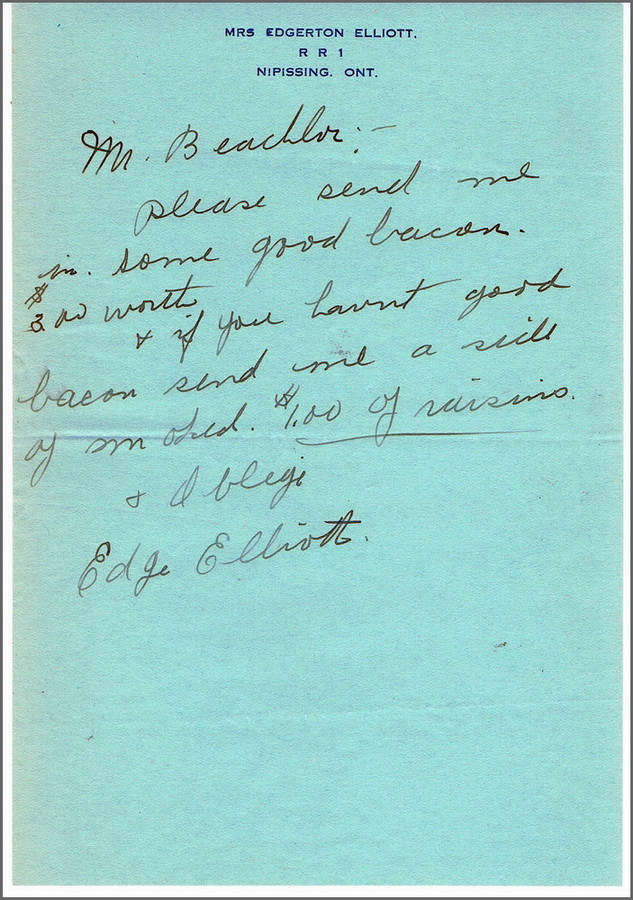 MRS EDGERTON ELLIOTT.
R R 1
NIPISSING. ONT.
Mr. Beachlor:-
please send me
in. some good bacon.
$3.00 worth
& if you havnt good
bacon send me a side
of smoked. $1.00 of raisins.
& Oblige
Edge Elliott.